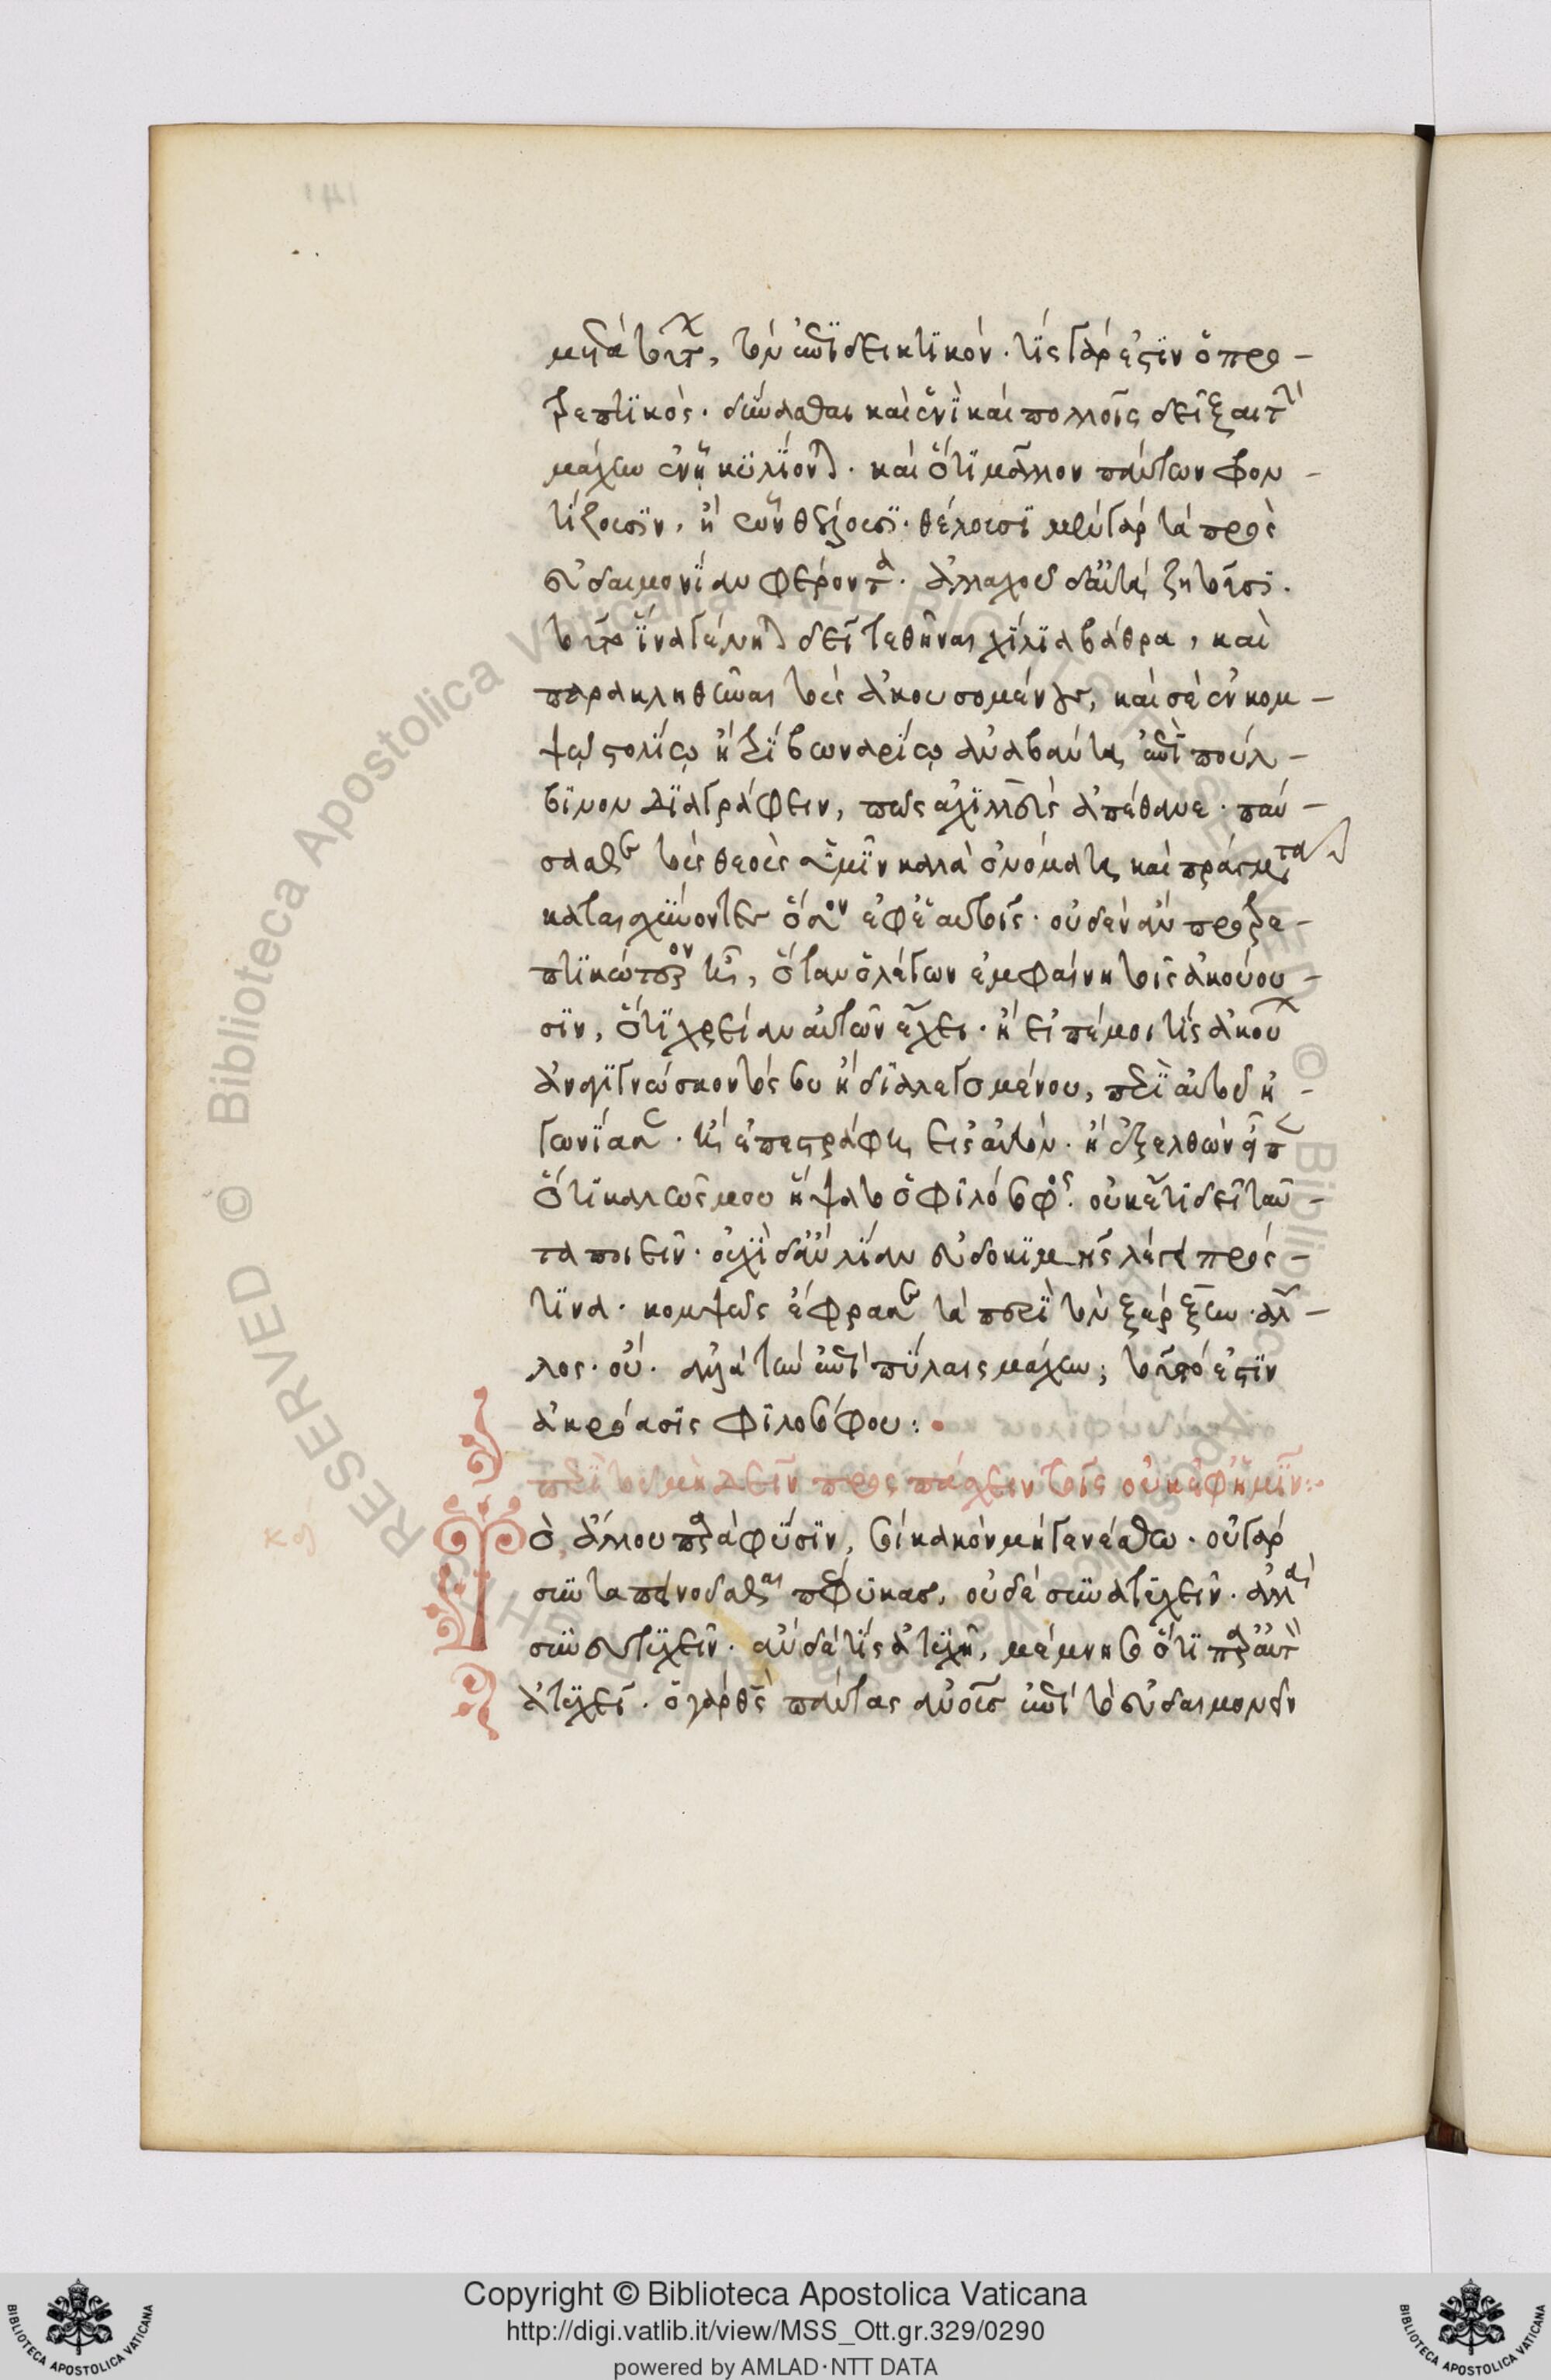 μετὰ τούτων, τὸν ἐπιδεικτικόν. τίς γάρ ἐστιν ὁ προ-
τρεπτικός. δύνασθαι καὶ ἑνὶ καὶ πολλοῖς δεῖξαι τὴν
μάχην ἐν ᾗ κυλίονται. καὶ ὅτι μᾶλλον πάντων φρον-
τίζουσιν, ἢ ὧν θέλουσι. θέλουσι μὲν γὰρ τὰ πρὸς
εὐδαιμονίαν φέροντα. ἀλλαχοῦ δ' αὐτὰ ζητοῦσι.
τοῦτο ἵνα γένηται δεῖ τεθῆναι χίλια βάθρα, καὶ
παρακληθῆναι τοὺς ἀκουσομένους, καὶ σὲ ἐν κομ-
ψῷ στολίῳ ἢ τριβωναρίῳ ἀναβάντα ἐπὶ πούλ-
βινον διαγράφειν, πῶς ἀχιλλεὺς ἀπέθανε. παύ-
σασθε τοὺς θεοὺς ὑμῖν καλὰ ὀνόματα καὶ πράγματα
καταισχύνοντες ὅσον ἐφ' ἑαυτοῖς. οὐδὲν ἂν προτρε-
πτικώτερον ἦν, ὅταν ὁ λέγων ἐμφαίνῃ τοῖς ἀκούου-
σιν, ὅτι χρείαν αὐτῶν ἔχει. ἢ εἰπέ μοι τίς ἀκούων
ἀναγινώσκοντός σου ἢ διαλεγομένου, περὶ αὐτοῦ ἠ-
γωνίασεν. ἢ ἐπεστράφη εἰς αὐτόν. ἢ ἐξελθὼν εἶπεν
ὅτι καλῶς μου ἥψατο ὁ φιλόσοφος. οὐκέτι δεῖ ταῦ-
τα ποιεῖν. οὐχὶ δ' ἂν λίαν εὐδοκιμῇς λέγει πρός-
τινα. κομψῶς ἔφρασεν τὰ περὶ τὸν ξέρξην. ἄλ-
λος. οὔ. ἀλλὰ τὴν ἐπὶ πύλαις μάχην; τοῦτό ἐστιν
ἀκρόασις φιλοσόφου:
περὶ τοῦ μὴ δεῖν προςπάσχειν τοῖς οὐκ ἐφ' ἡμῖν:
κδ
Τὸ ἄλλου παρὰ φύσιν, σοὶ κακὸν μὴ γενέσθω. οὐ γὰρ
συνταπεινοῦσθαι πέφυκας, οὐδὲ συνατυχεῖν. ἀλλὰ
συνευτυχεῖν. ἂν δέ τις ἀτυχῇ, μέμνησο ὅτι παρ' αὑτὸν
ἀτυχεῖ. ὁ γὰρ θεὸς πάντας ἀνθρώπους ἐπὶ τὸ εὐδαιμονεῖν
Copyright © Biblioteca Apostolica Vaticana
http://digi.vatlib.it/view/MSS_Ott.gr.329/0290
powered by AMLAD·NTT DATA